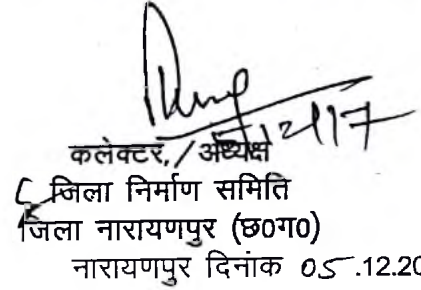 कलेक्टर, / अध्यक्ष
जिला निर्माण समिति
जिला नारायणपुर (छ०ग०)
नारायणपुर दिनांक 05.12.20